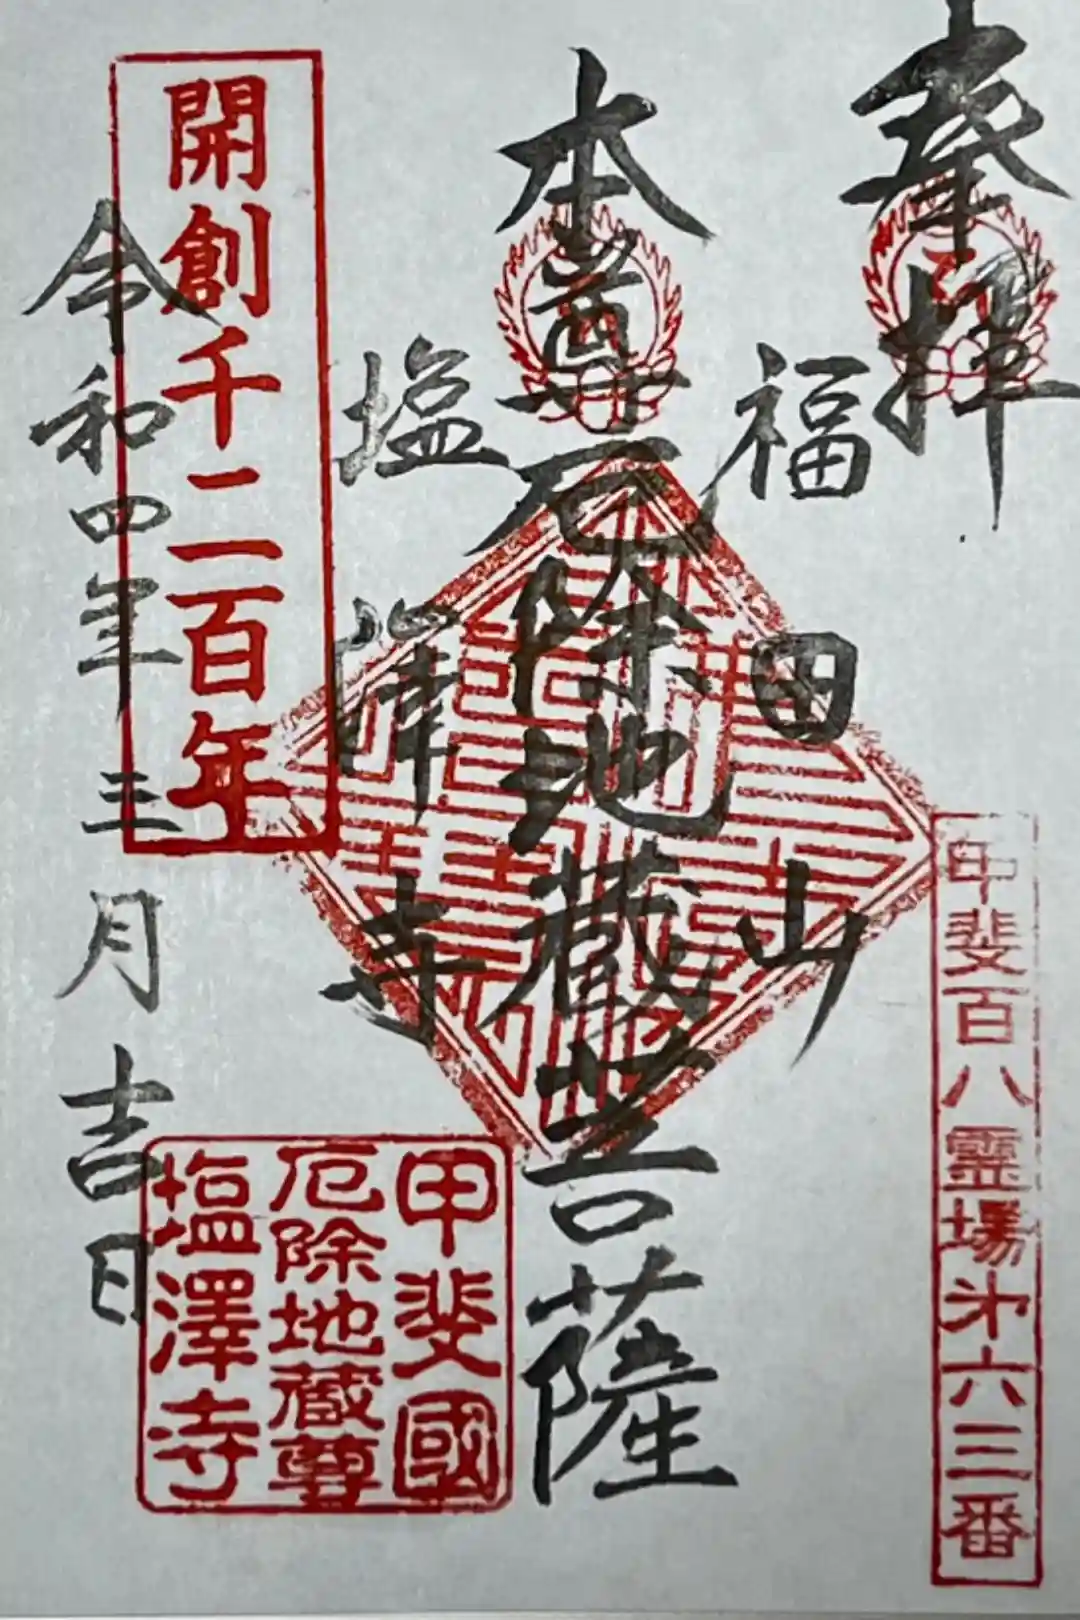 奉拝
甲斐百八霊場㐧六三番
福田山
本尊厄除地蔵菩薩
塩澤寺
甲斐國
厄除地蔵尊
塩澤寺
開創千二百年
令和四年三月吉日